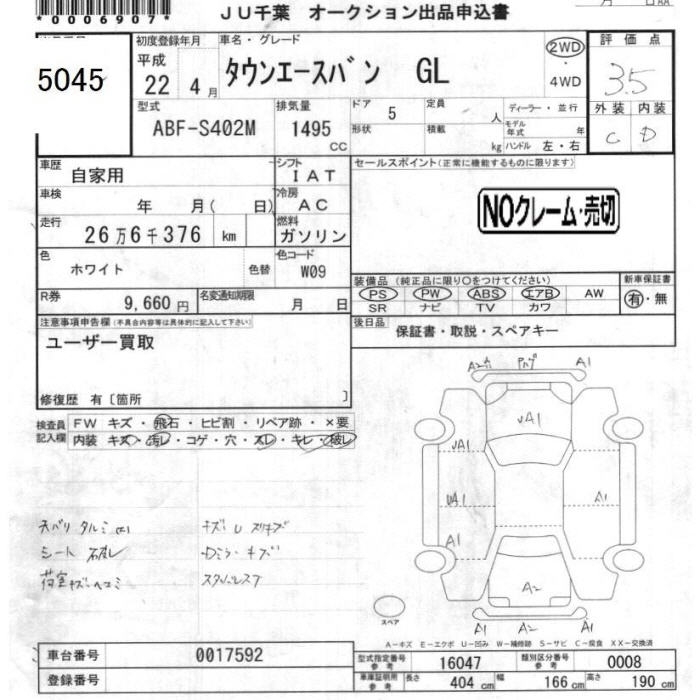 *0006907*
JU千葉 オークション出品申込書
5045
初度登録年月
平成
22 4月
車名・グレード
タウンエースバン GL
2WD
・
4WD
評価点
3.5
外装 内装
C D
型式
ABF-S402M
排気量
1495 CC
ドア 5
定員 人
形状
積載 kg
ディーラー・並行
モデル年式 年
ハンドル 左・右
車歴
自家用
シフト
IAT
セールスポイント(正常に機能するものに限ります)
NOクレーム・売切
車検
年 月( 日)
冷房
AC
走行
26万6千376 km
燃料
ガソリン
色
ホワイト 色替
色コード
W09
装備品(純正品に限り○をつけてください)
PS PW ABS エアB AW
SR ナビ TV カワ
新車保証書
有・無
R券
9,660円
名変通知期限
月 日
後日品
保証書・取説・スペアキー
注意事項申告欄(不具合内容等は具体的に記入して下さい)
ユーザー買取
修復歴 有〔箇所 〕
検査員記入欄
FW キズ・飛石・ヒビ割・リペア跡・×要
内装 キズ・汚レ・コゲ・穴・スレ・キレ・破レ
A1
UA1
A1
UA1
A1
A1
A2
A1 A2 A1
天バリ タルミ
シート
キズ
スペア
A-キズ E-エクボ U-凹み W-補修跡 S-サビ C-腐食 XX-交換済
車台番号 0017592
登録番号
型式指定番号 参考 16047
類別区分番号 参考 0008
車庫証明用 参考 長さ 404 cm 幅 166 cm 高さ 190 cm